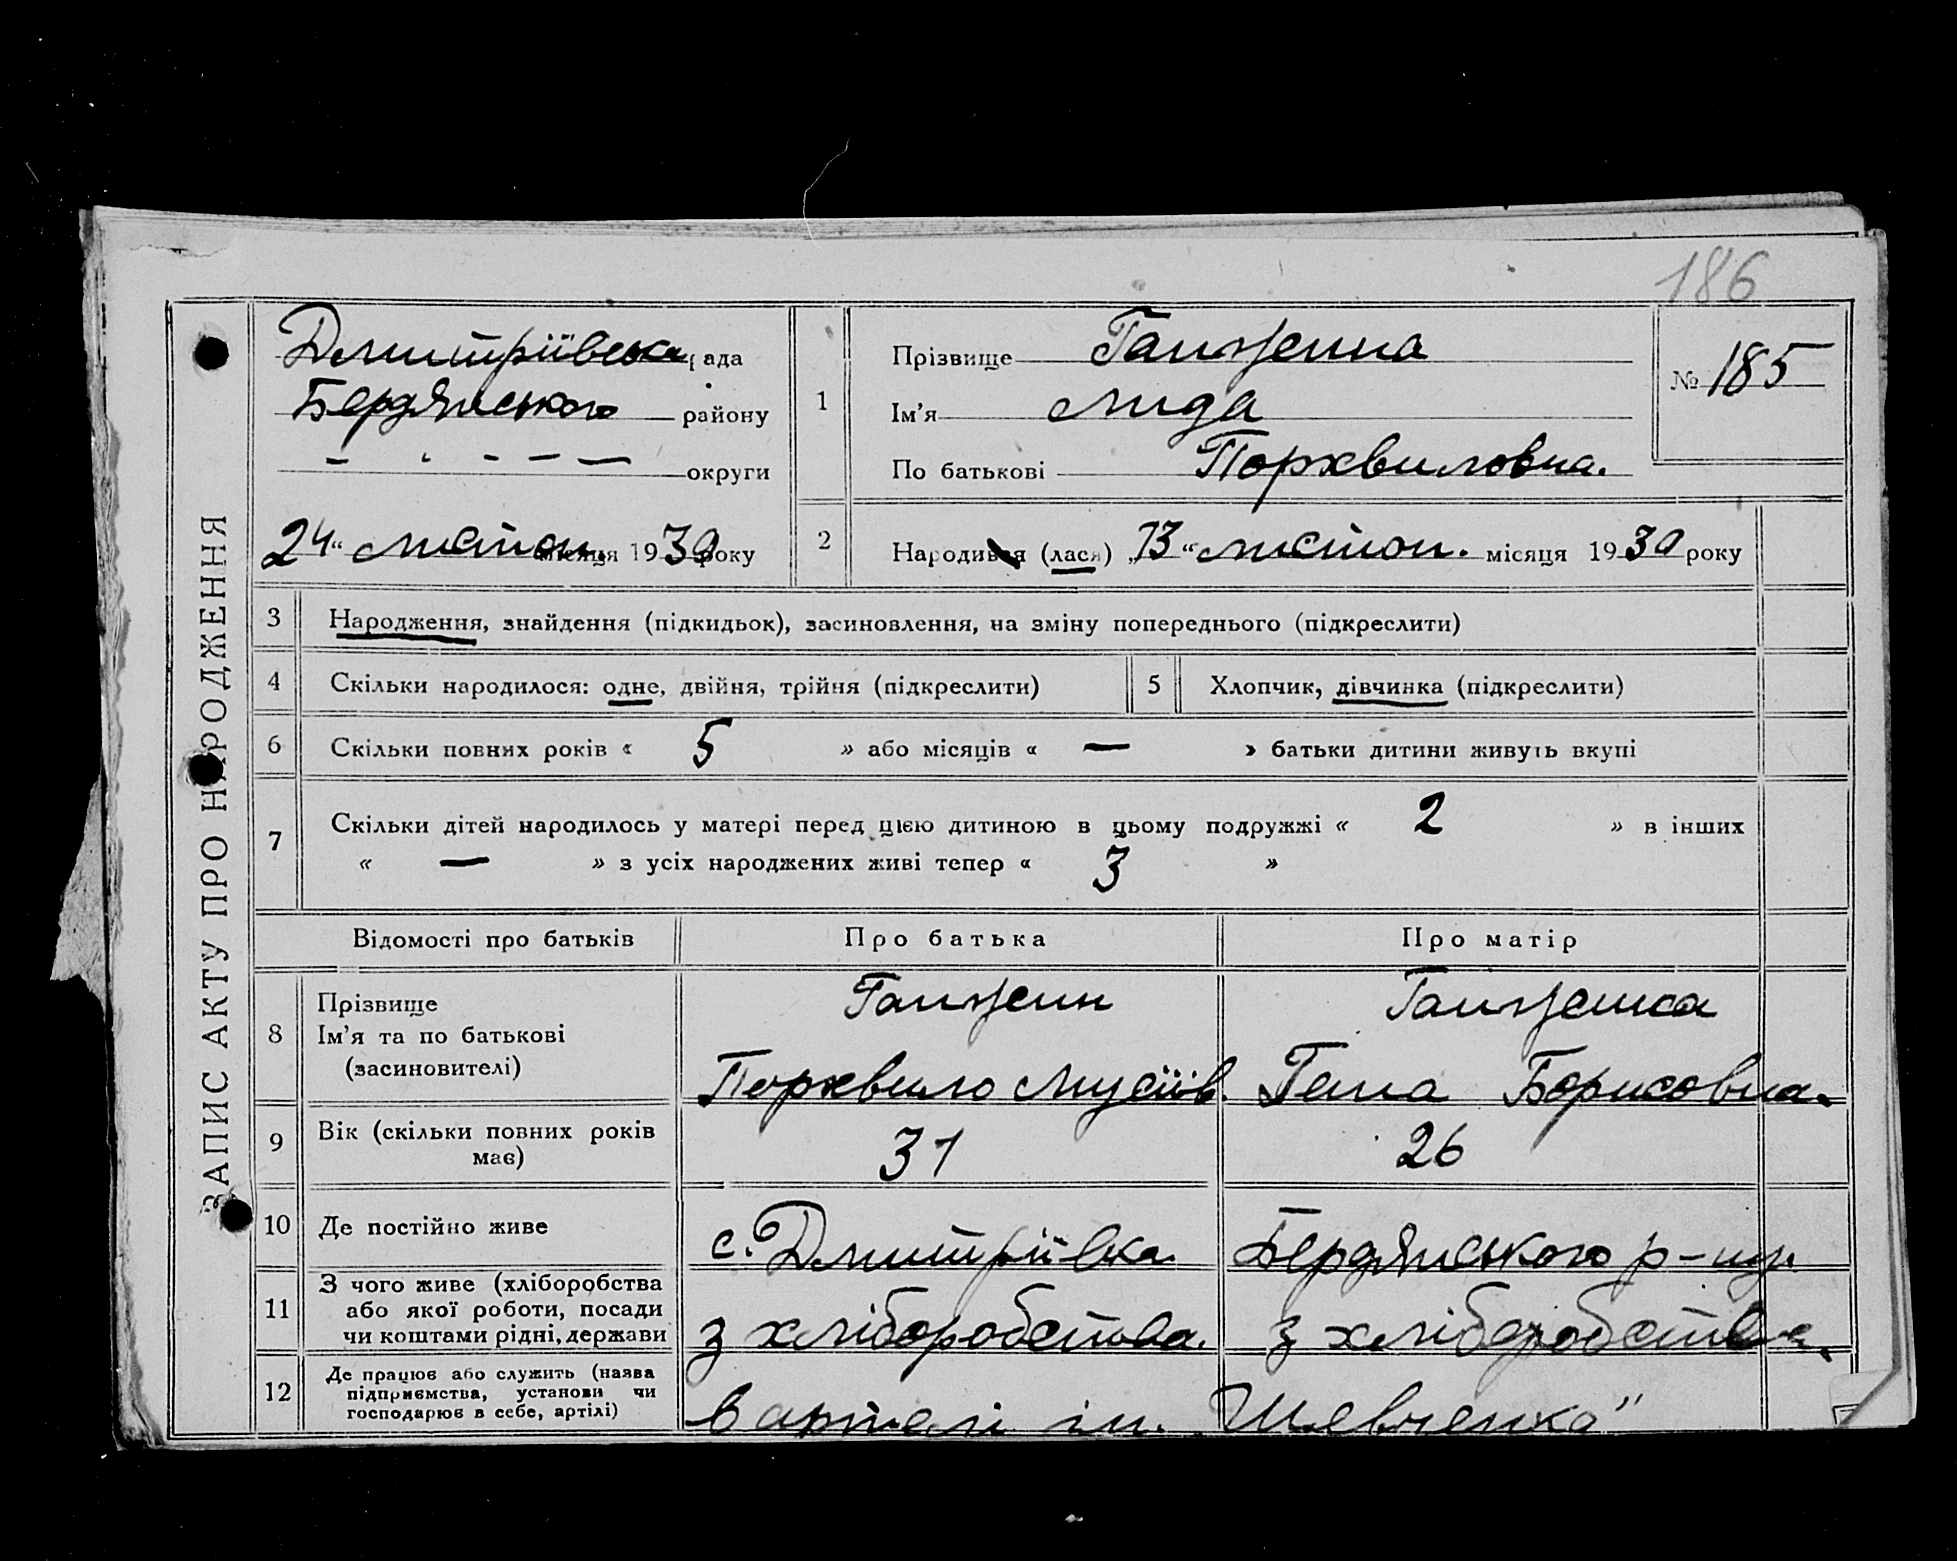 186
ЗАПИС АКТУ ПРО НАРОДЖЕННЯ
Дмитріївська рада
Бердянського району
округи
24 “ листоп. місяця 1930 року
1
Прізвище
Ім’я Лида
По батькові Порхвиловна.
№ 185
2
Народився (лася) „13“ листоп. місяця 1930 року
3 Народження, знайдення (підкидьок), засиновлення, на зміну попереднього (підкреслити)
4 Скільки народилося: одне, двійня, трійня (підкреслити) 5 Хлопчик, дівчинка (підкреслити)
6 Скільки повних років « 5 » або місяців « — » батьки дитини живуть вкупі
7 Скільки дітей народилось у матері перед цією дитиною в цьому подружжі « 2 » в інших
« — » з усіх народжених живі тепер « 3 »
Відомості про батьків Про батька Про матір
8 Прізвище
Ім’я та по батькові
(засиновителі)
Порхвило Мусіїв. Борисовна.
9 Вік (скільки повних років
має)
31 26
10 Де постійно живе с. Дмитріївка Бердянського р-ну.
11 З чого живе (хліборобства
або якої роботи, посади
чи коштами рідні, держави
з хліборобства. з хліборобства.
12 Де працює або служить (назва
підприємства, установи чи
господарює в себе, артілі)
в артелі ім. „Шевченка”